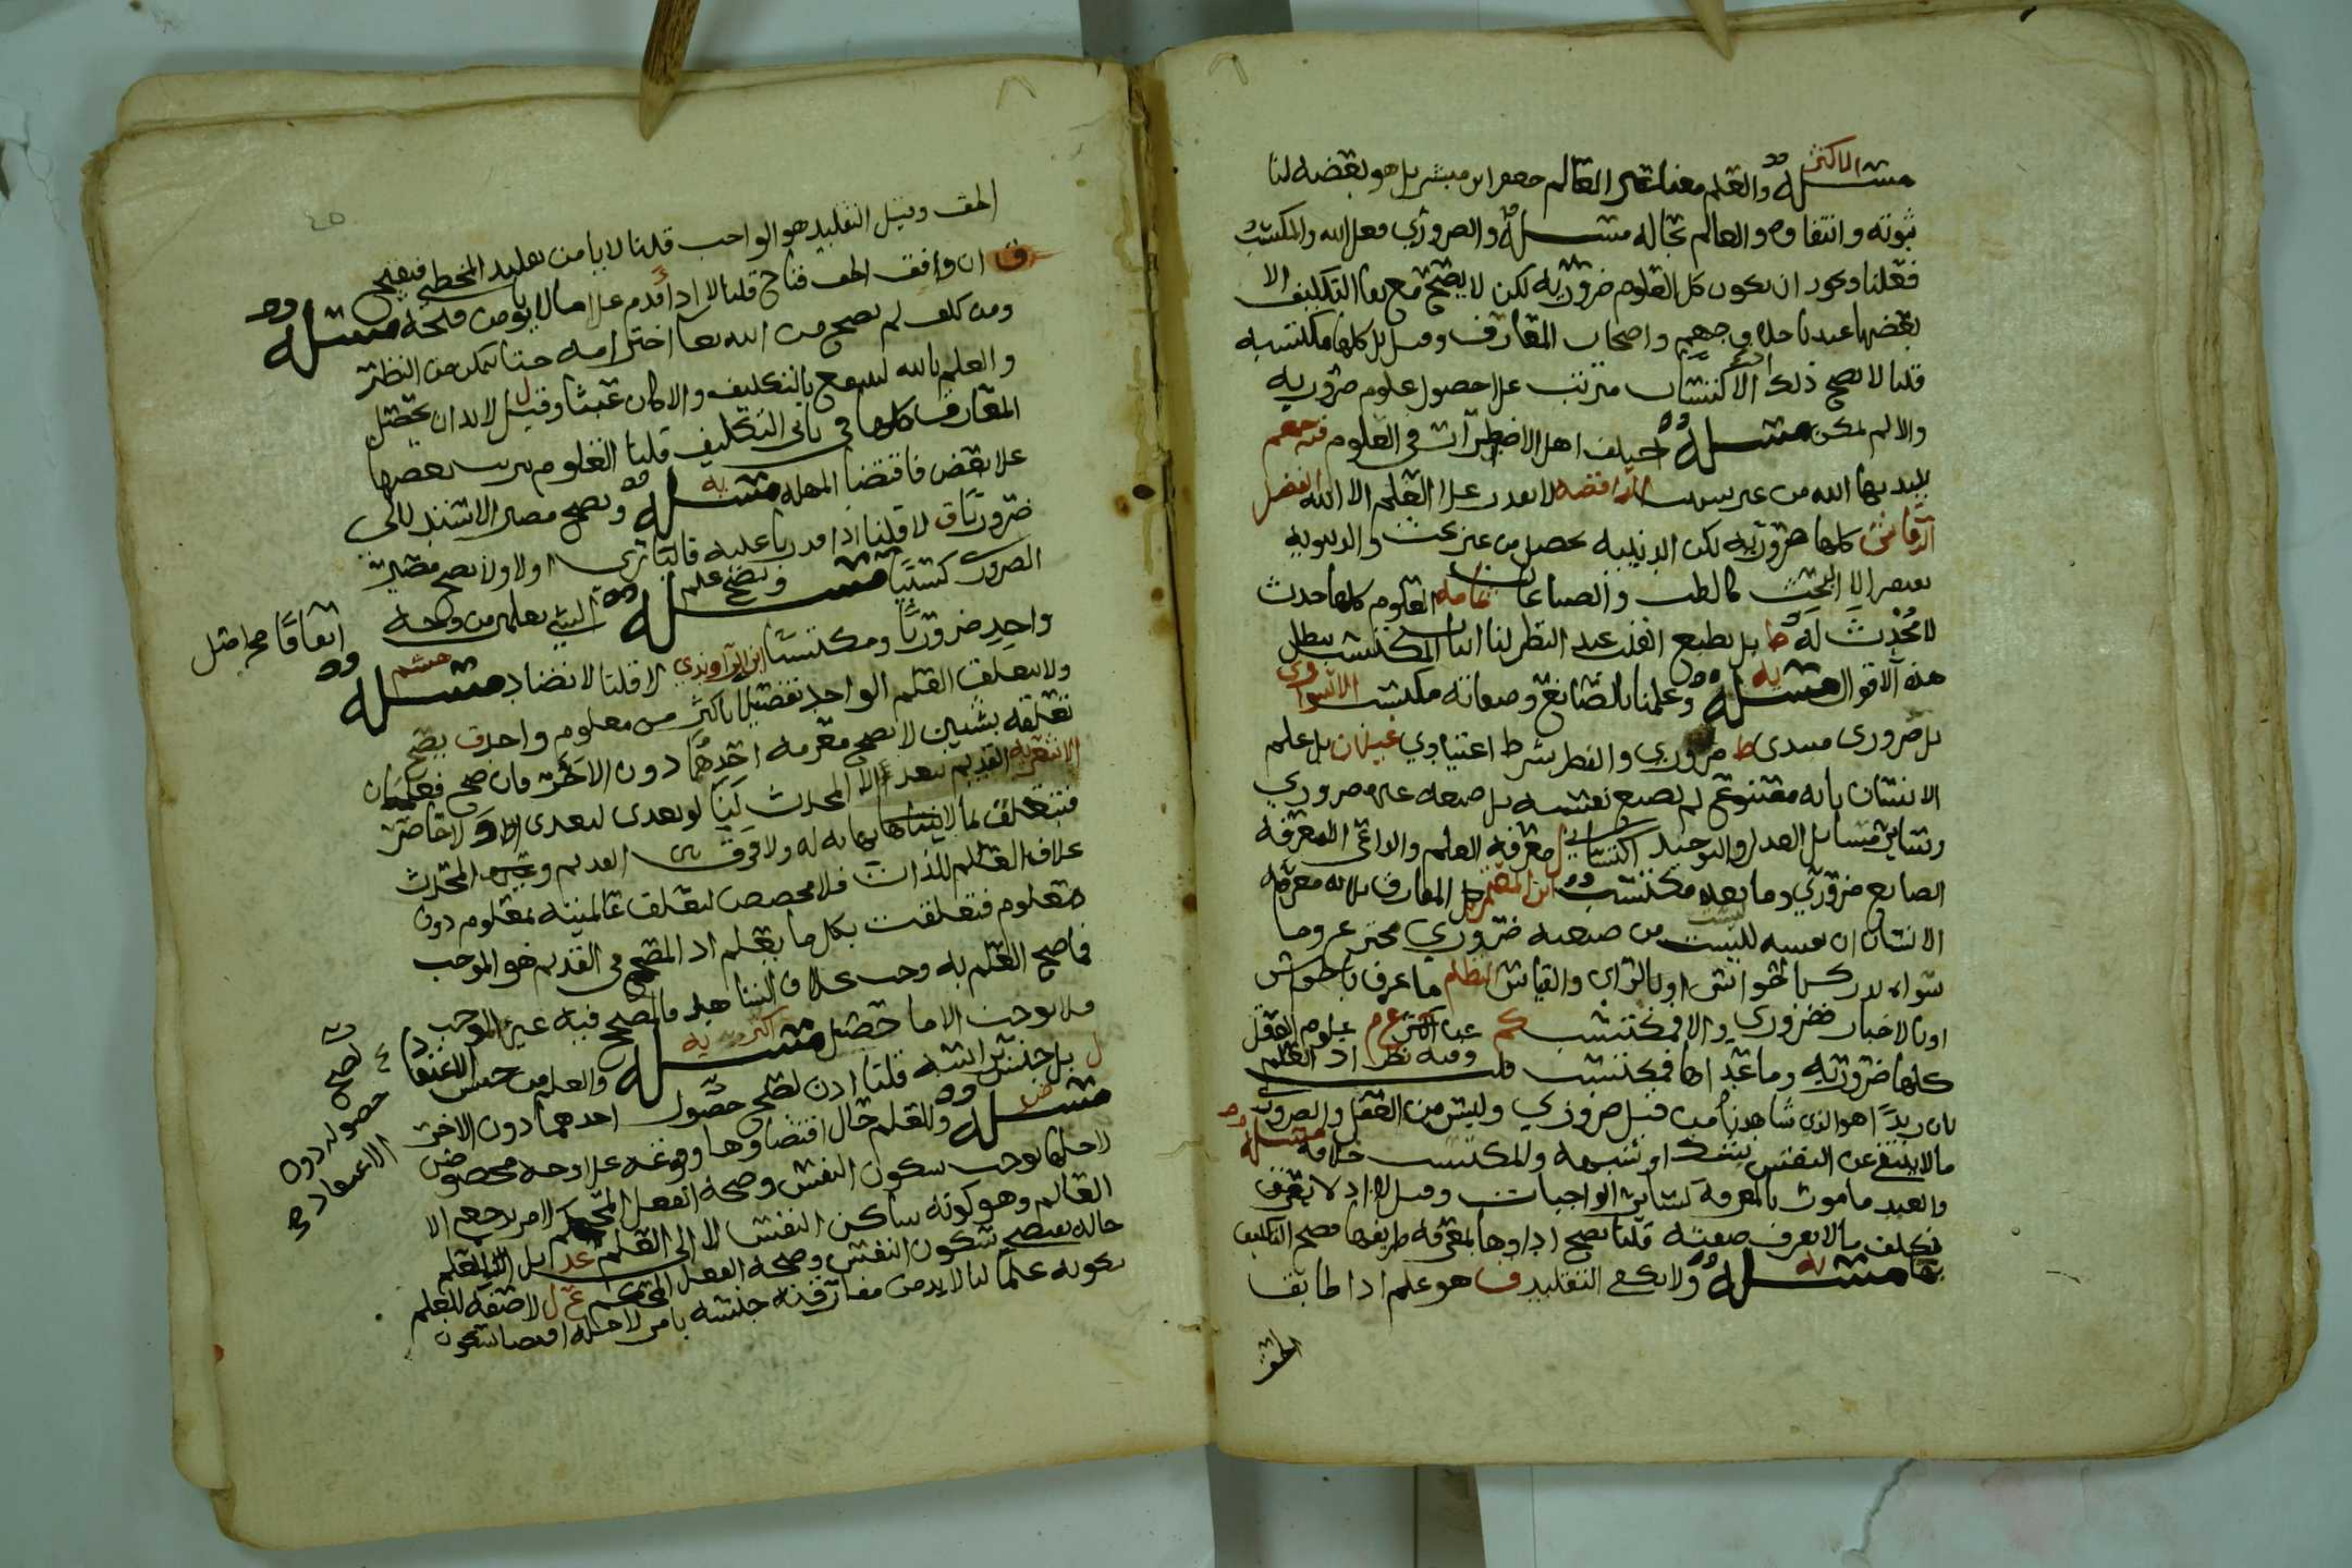 الاكثر
مسئلة والعلم معنا غير العالم جعفر ابن مبشر بل هو بعضه لنا
ثبوته وانتفاوه والعالم بحاله مسئلة والضروري فعل الله والمكتسب
فعلنا ويجوز ان يكون كل العلوم ضرورية لكن لا يصح مع بقا التكليف الا
بعضها عند ناجهم واصحاب المعارف وقيل بل كلها مكتسبه
قلنا لا يصح ذلك اذ الاكتساب مترتب على حصول علوم ضروريه
والا لم يمكن مسئلة اختلف اهل الاضطرار في العلوم فمنهم
يبتديها الله من غير سبب الرافضه لا يقدر على العلم الا الله الفضل
الرقاشي كلها ضروريه لكن الدينيه تحصل من غير بحث والدنيويه
تفتقر الا البحث كالطب والصناعات ثمامه العلوم كلها حدث
لا محدث له ظ بل بطبع القلب عند النظر لنا اثبات المكتسب يبطل
هذه الاقوال مسئلة يه وعلمنا بالصانع وصفاته مكتسب الاسواري
بل ضروري مبتدى ظ ضروري والنظر شرط اعتيادي غيلان بل علم
الانسان بانه مصنوع لم يصنع نفسه بل صنعه غيره ضروري
وسائر مسائل العدل والتوحيد اكتسابي ل معرفة العلم والداعي الا معرفة
الصانع ضروري وما بعده مكتسب ابن المعتمر كل المعارف الا معرفة
الانسان ان نفسه ليست من صنعه ضروري مخترعه وما
سواه يدرك بالحواس او بالراي والقياس النظام ما عرف بالحواس
او بالاخبار فضروري والا فمكتسب كم عن اكثر عم علوم العقل
كلها ضروريه وما عداها فمكتسب قلت وفيه نظر اذ العلم
بان زيدا هو الذي شاهدناه من قبل ضروري وليس من العقل والضروري
ما لا ينتفي عن النفس بشك او شبهة والمكتسب خلافه مسئلة
والعبد مامور بالمعرفة كسائر الواجبات وقيل لا اذ لا يعرف
تكليف ما لا يعرف صفته قلنا يصح اداوها بمعرفة طريقها فصح التكليف
بها مسئلة يه ولا يكفي التقليد ق هو علم اذا طابق
الحق
الحق وقيل التقليد هو الواجب قلنا لا يامن تقليد المخطي فيقبح
ق ان وافق الحق فناج قلنا لا اذ اقدم على ما لا يامن قبحه مسئلة
ومن كلف لم يصح من الله تعا اخترامه حتا يمكن من النظر
والعلم بالله ليسمع بالتكليف والا كان عبثا وقيل لا بد ان يحصل
المعارف كلها في ثاني التكليف قلنا العلوم يترتب بعضها
على بعض فاقتضا المهله مسئلة يه ويصح مصير الاستدلالي
ضروريا ق لا قلنا اذا قدر ناعليه فالباري اولا ولا يصح مصير
الضروري كسبيا مسئلة ويصح علم الشي بعلمين من وجه
واحد ضروريا ومكتسبا ابن الراوندي لا قلنا لا تضاد مسئلة هشم
اتفاقا مح امثل
ولا يتعلق العلم الواحد تفصيلا باكثر من معلوم واحد ق يصح
تعلقه بشيين لا يصح معرفة احدهما دون الاخر فان صح فعلمان
الاشعرية القديم يتعدى لا المحدث لنا لو تعدى لتعدى اذ لا حاصر
فيتعلق بما لا يتناها ولا فرق بين القديم وعلم المحدث
خلاف العالم للذات فلا مخصص لتعلق عالميته بمعلوم دون
معلوم فتعلقت بكل ما يعلم اذ المصحح في القديم هو الموجب
فما صح العلم به وجب خلاف الشاهد فالمصحح فيه غير الموجب
فلا يوجب الا ما حصل مسئلة اكثر يه والعلم من جنس الاعتقاد
ل بل جنس براسه قلنا اذن لصح حصول احدهما دون الاخر
مسئلة ض وللعلم حال اقتضاوها وقوعه على وجه مخصوص
لاجلها توجب سكون النفس وصحة الفعل المحكم لامر يرجع الا
العالم وهو كونه ساكن النفس لا الى العلم عد بل العلم
حاله تقتضي سكون النفس وصحة الفعل المحكم ع ل لا صفة للعلم
بكونه علما لنا لا بد من مفارقته جنسه بامر لاجله اقتضا سكون
لصح حصوله دون الاعتقاد